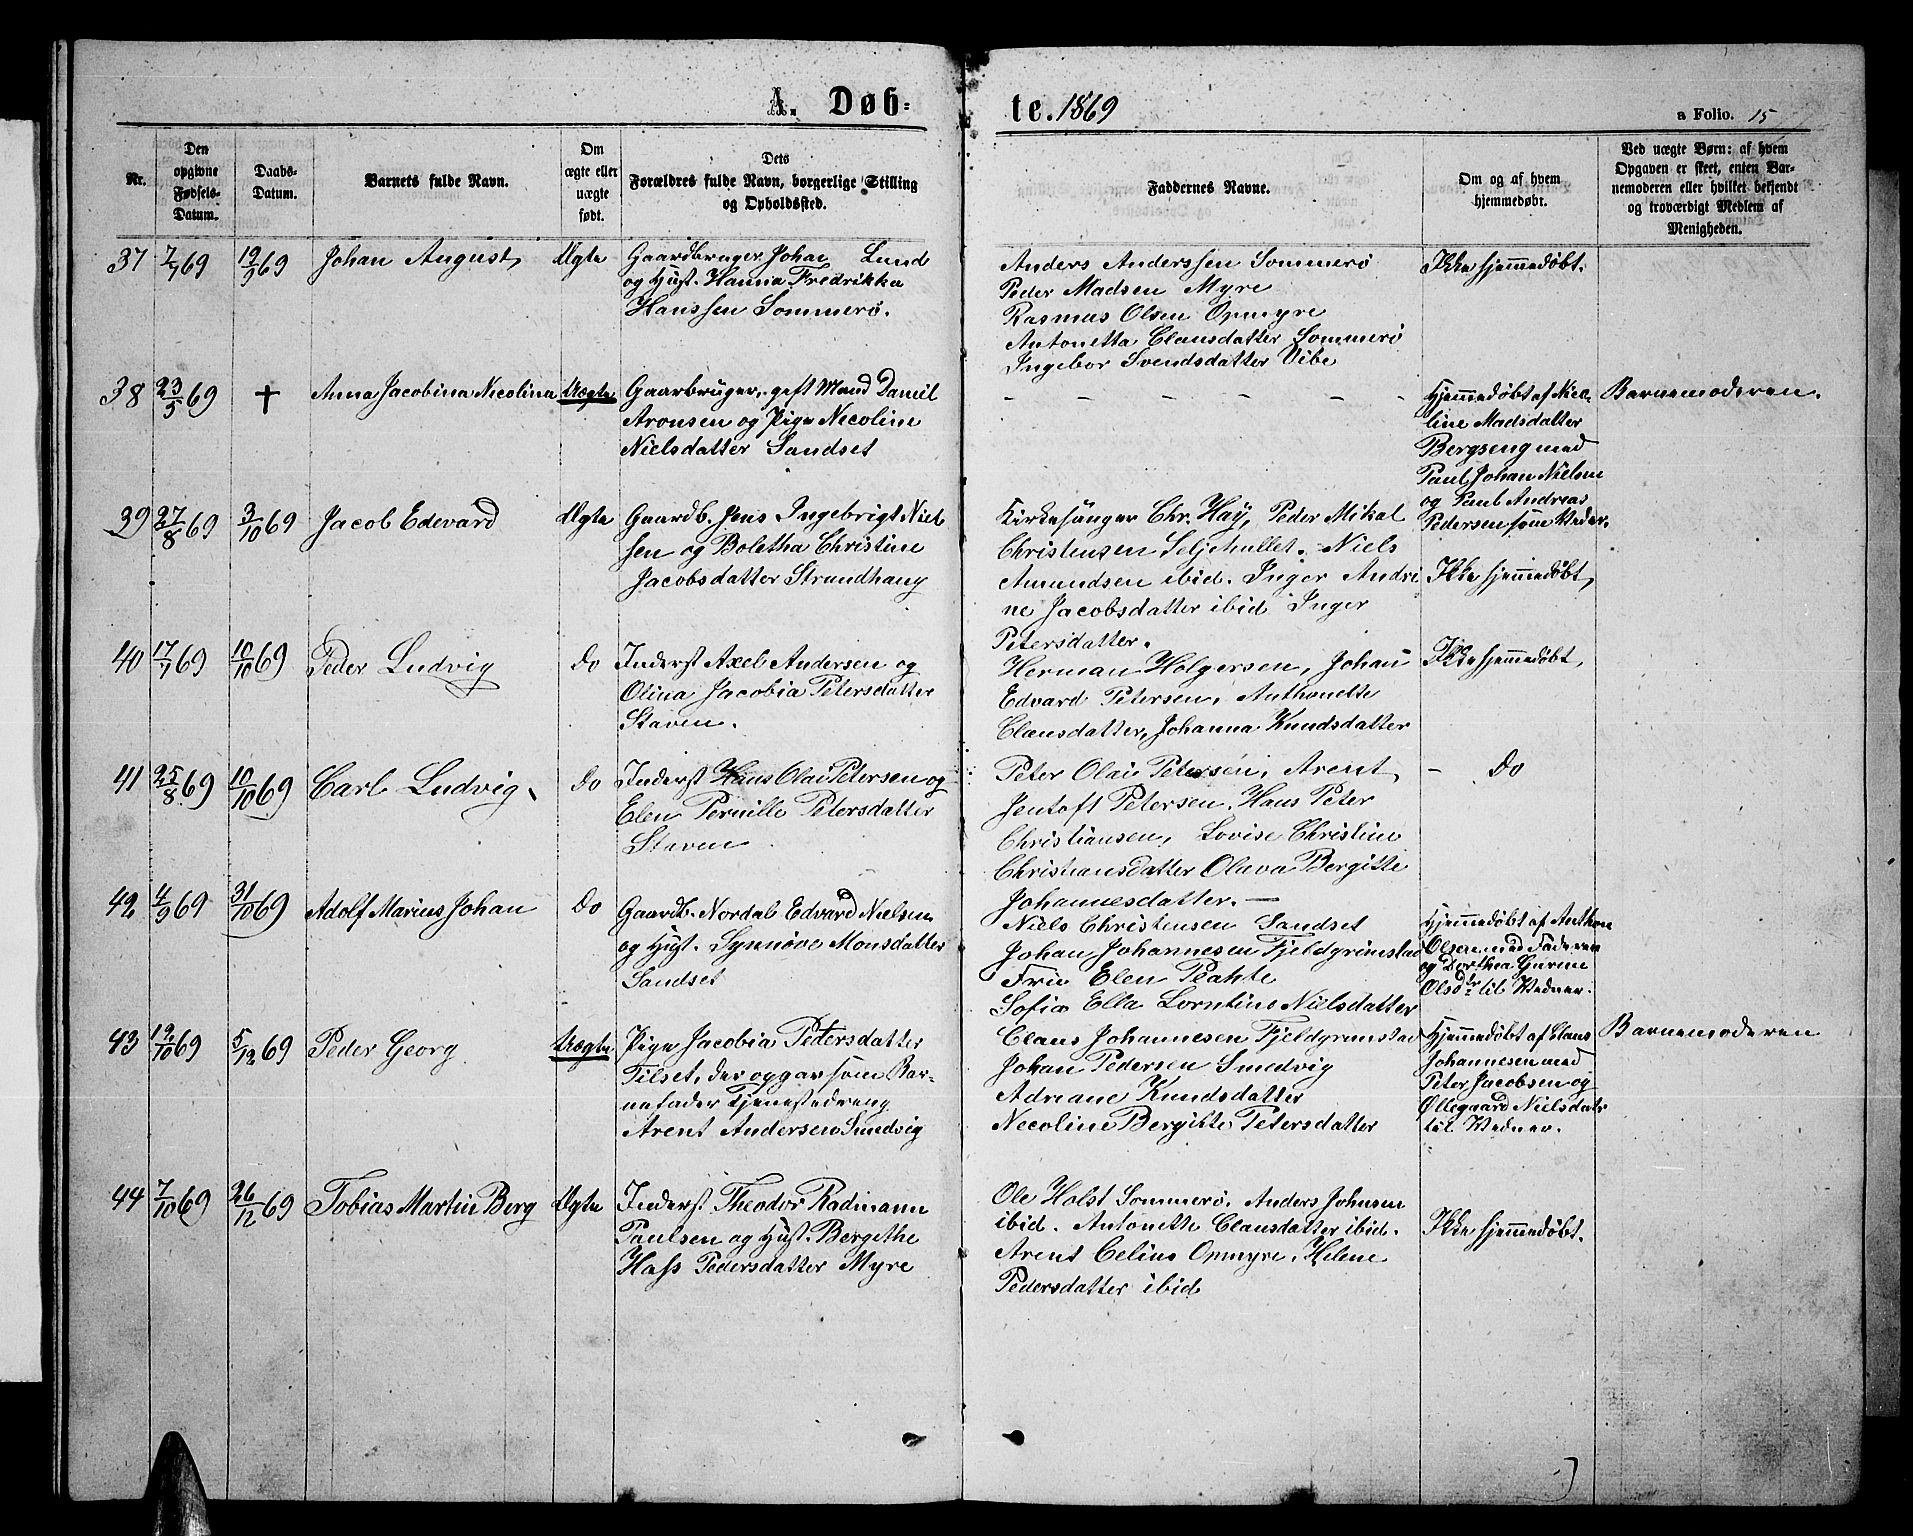 A. Døb-
te. 1869
a Folio. 15
Nr.
Den opgivne Fødsels-Datum.
Daabs-Datum.
Barnets fulde Navn.
Om ægte eller uægte født.
Dets Forældres fulde Navn, borgerlige Stilling og Opholdssted.
Faddernes Navne.
Om og af hvem hjemmedøbt.
Ved uægte Børn: af hvem Opgaven er skeet, enten Barnemoderen eller hvilket bekjendt og troværdigt Medlem af Menigheden.
37 7/7 69 19/9 69 Johan August, Ægte
Gaardbruger Johan Lund
og Hust. Hanna Fredrikka
Hanssen Sommerø.
Anders Anderssen Sommerø
Peder Madsen Myre
Rasmus Olsen Opmyre
Antonetta Clausdatter Sommerø
Ingebor Svendsdatter Vibe
Ikke hjemmedøbt.
38 23/5 69 + Anna Jacobina Nicolina Uægte
Gaarbruger, gift Mand Daniel
Aronsen og Pige Nicoline
Nielsdatter Sandset
- - - - - -
Hjemmedøbt af Nico-
line Madsdatter
Bergseng med
Paul Johan Nielsen
og Paul Andreas
Pedersen som Vidner.
Barnemoderen.
39 27/8 69 3/10 69 Jacob Edevard Ægte
Gaardb. Jens Ingebrigt Niel
sen og Boletha Christine
Jacobsdatter Strandhaug
Kirkesanger Chr. Høy, Peder Mikal
Christensen Seljehullet. Niels
Amundsen ibid. Inger Andri
ne Jacobsdatter ibid Inger
Petersdatter.
Ikke hjemmedøbt,
40 17/7 69 10/10 69 Peder Ludvig do
Inderst Axel Andersen og
Olina Jacobia Petersdatter
Staven.
Herman Holgersen, Johan
Edvard Petersen, Anthonette
Clausdatter, Johanna Knudsdatter
Ikke hjemmedøbt,
41 25/8 69 10/10 69 Carl Ludvig, do
Inderst Hans Olai Petersen og
Elen Pernille Petersdatter
Staven
Peter Olai Petersen, Arent
Jentoft Petersen, Hans Peter
Christiansen, Lovise Christine
Christiansdatter Olava Bergitte
Johannesdatter. —
- do
42 4/9 69 31/10 69 Adolf Marius Johan do
Gaardb. Nordal Edvard Nielsen
og Hust. Synnøve Monsdatter
Sandset
Niels Christensen Sandset
Johan Johannesen Fjeldgrimstad
Fru Elen
Sofia Ella Lorntine Nielsdatter
Hjemmedøbt af Anthon
Olsen med Faderen
og Dorthea Gurine
Olsdtr til Vidner.
43 19/10 69 5/12 69 Peder Georg Uægte
Pige Jacobia Petersdatter
Tilset, der opgav som Bar-
nefader Tjenestedreng
Arent Andersen Smedvig
Claus Johannesen Fjeldgrimstad
Johan Pedersen Smedvig
Adriane Knudsdatter
Necoline Bergitte Petersdatter
Hjemmedøbt af Claus
Johannesen med
Peter Jacobsen og
Øllegaard Nielsdatr
til Vidner.
Barnemoderen
44 7/10 69 26/12 69 Tobias Martin Berg Ægte
Inderst Theodor Radmann
Paulsen og Hust. Bergithe
Hass Pedersdatter Myre
Ole Holst Sommerø. Anders Johnsen
ibid. Antonette Clausdatter ibid.
Arent Celius Opmyre. Helene
Pedersdatter ibid
Ikke hjemmedøbt.